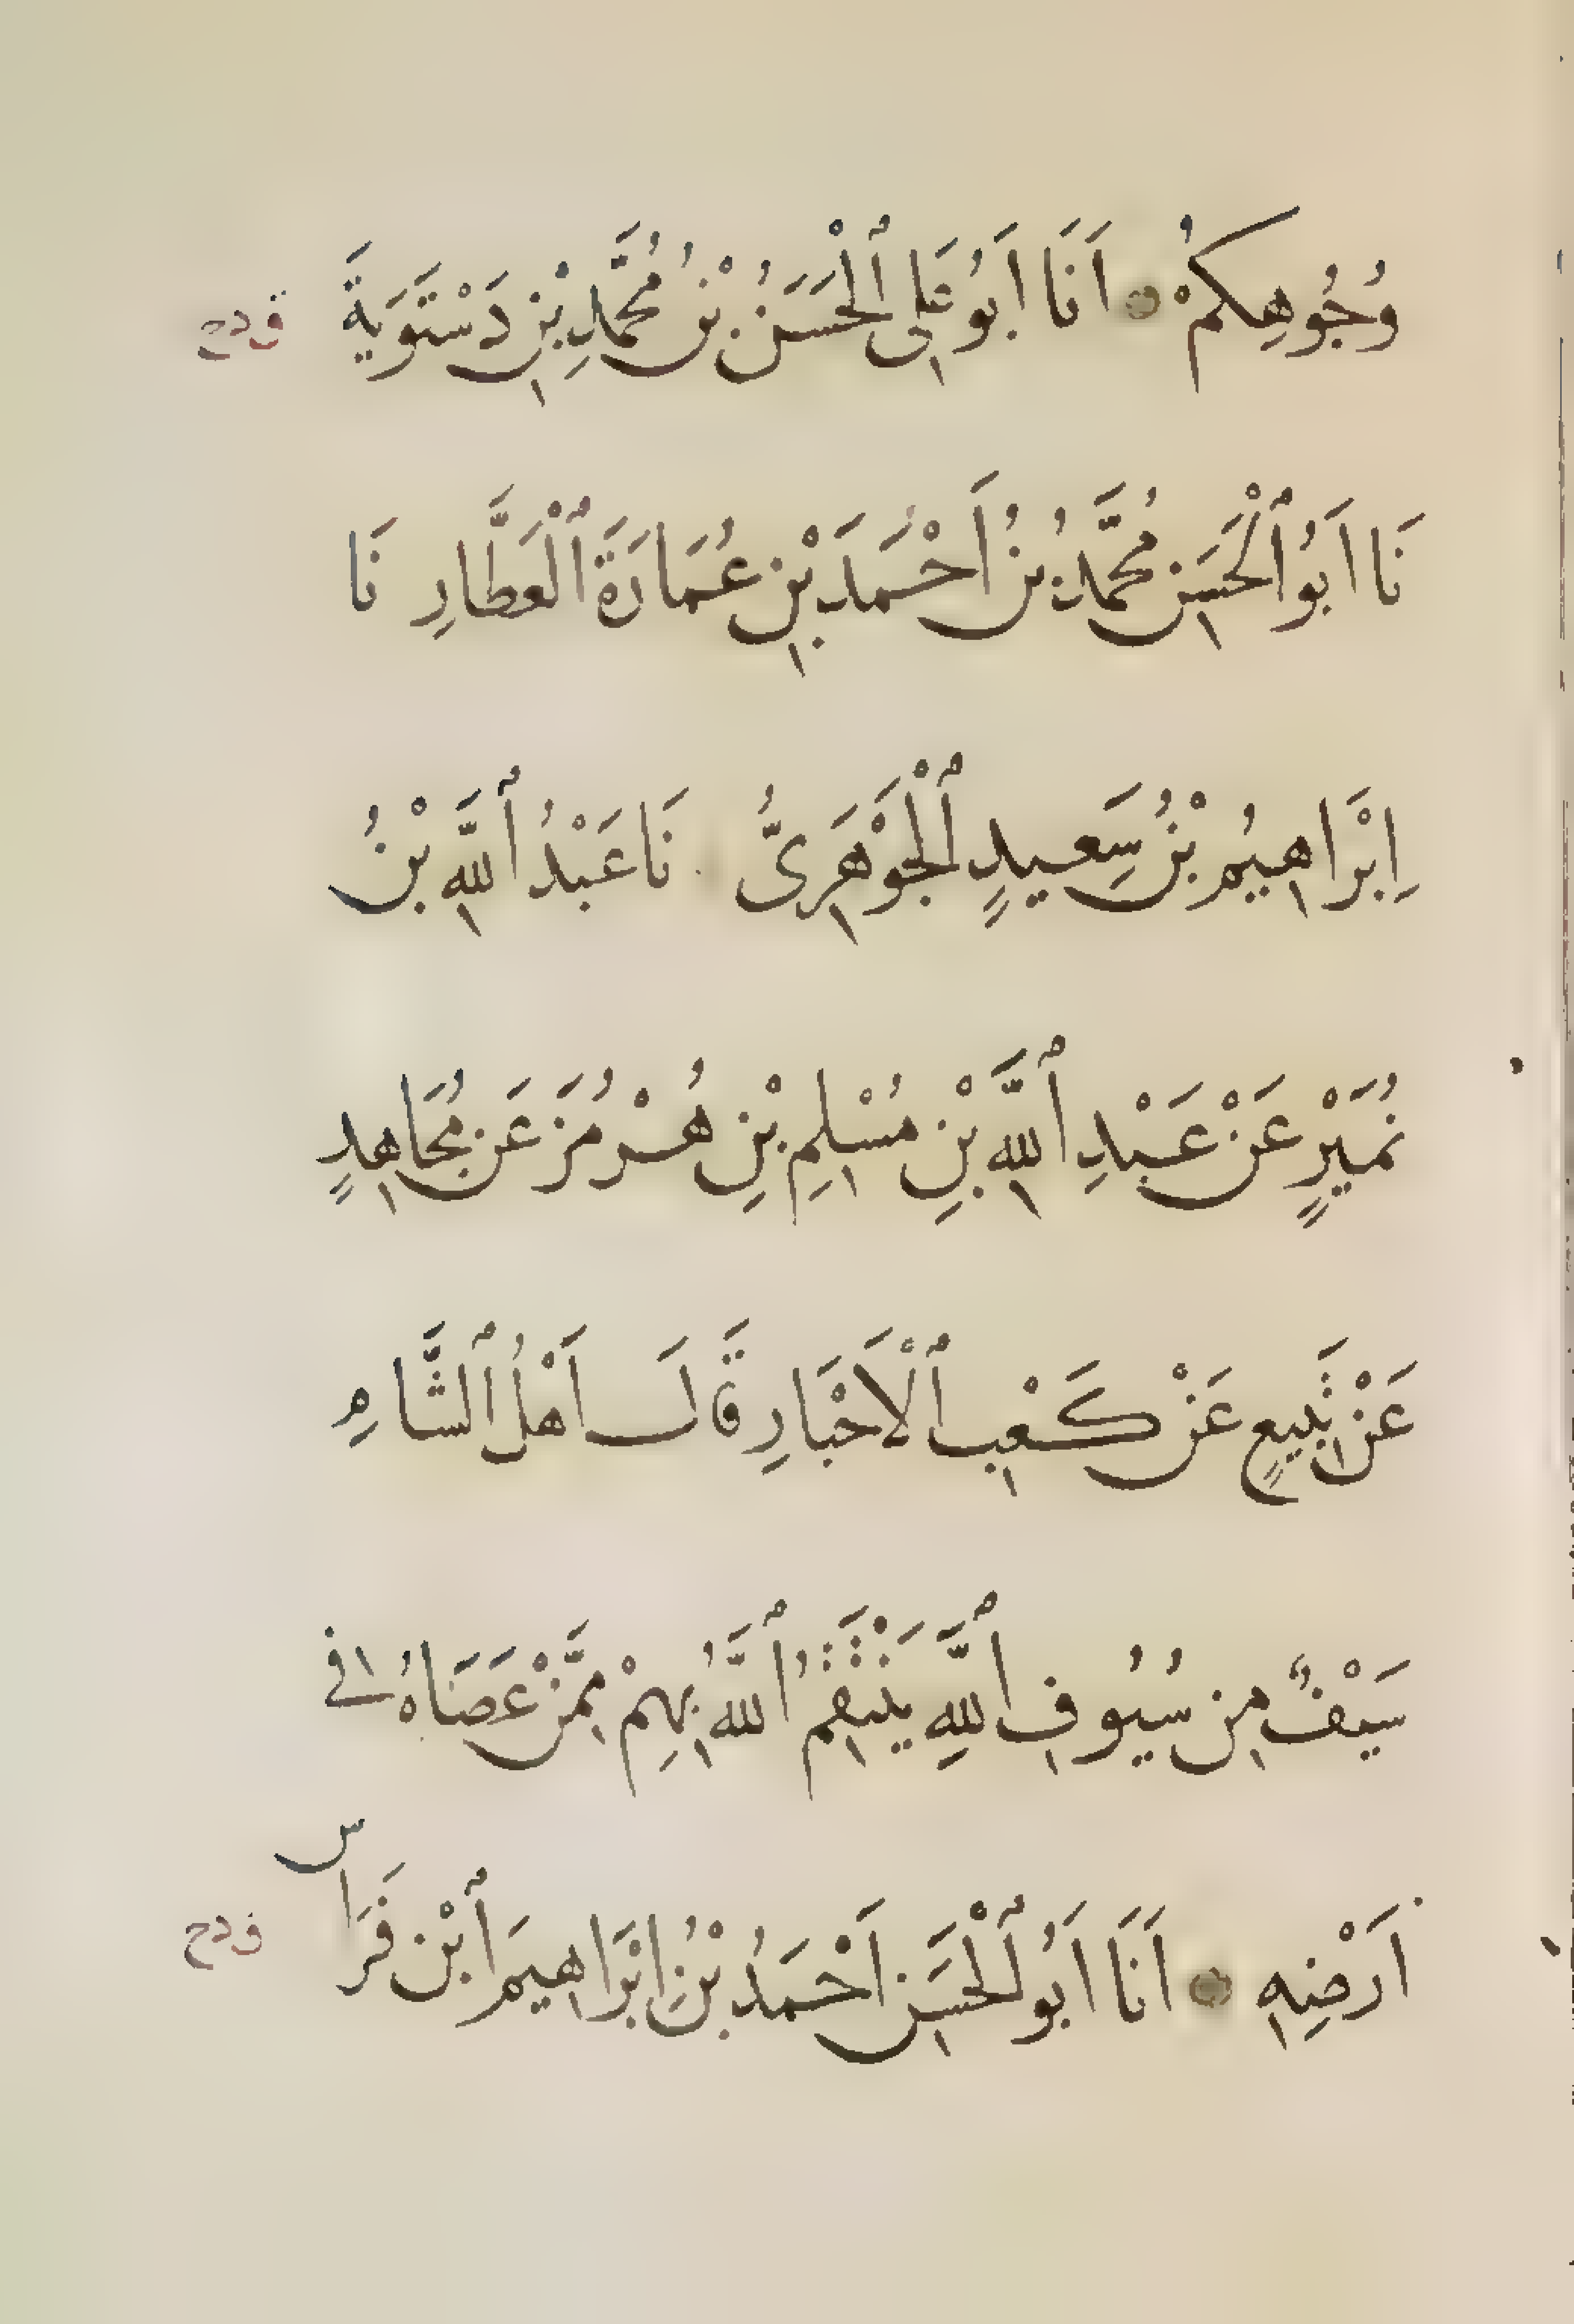 وُجُوهِكُمْ اَنَا اَبُو عَلِى ٱلْحَسَنُ بْنُ مُحَمَّدِ بْنِ دَسْتَوَيَةَ
نَا اَبُو ٱلْحَسَنِ مُحَمَّدُ بْنُ اَحْمَدَ بْنِ عُمَارَةَ ٱلْعَطَّارِ نَا
اِبْرَاهِيمُ بْنُ سَعِيدٍ ٱلْجَوْهَرِىُّ نَا عَبْدُ ٱللَّهِ بْنُ
نُمَيْرٍ عَنْ عَبْدِ ٱللَّهِ بْنِ مُسْلِمِ بْنِ هُرْمُزَ عَن مُجَاهِدٍ
عَنْ تُبَيعٍ عَنْ كَعْبِ ٱلْاَحْبَارِ قَالَ اَهْلُ ٱلشَّامِ
سَيْفٌ مِن سُيُوفِ ٱللَّهِ يَنْتَقِمُ ٱللَّهُ بِهِمْ مِمَّنْ عَصَاهُ فِى
اَرْضِهِ اَنَا اَبُو ٱلْحَسَنِ اَحْمَدُ بْنُ اِبْرَاهِيمَ ٱبْنِ فَرَاس